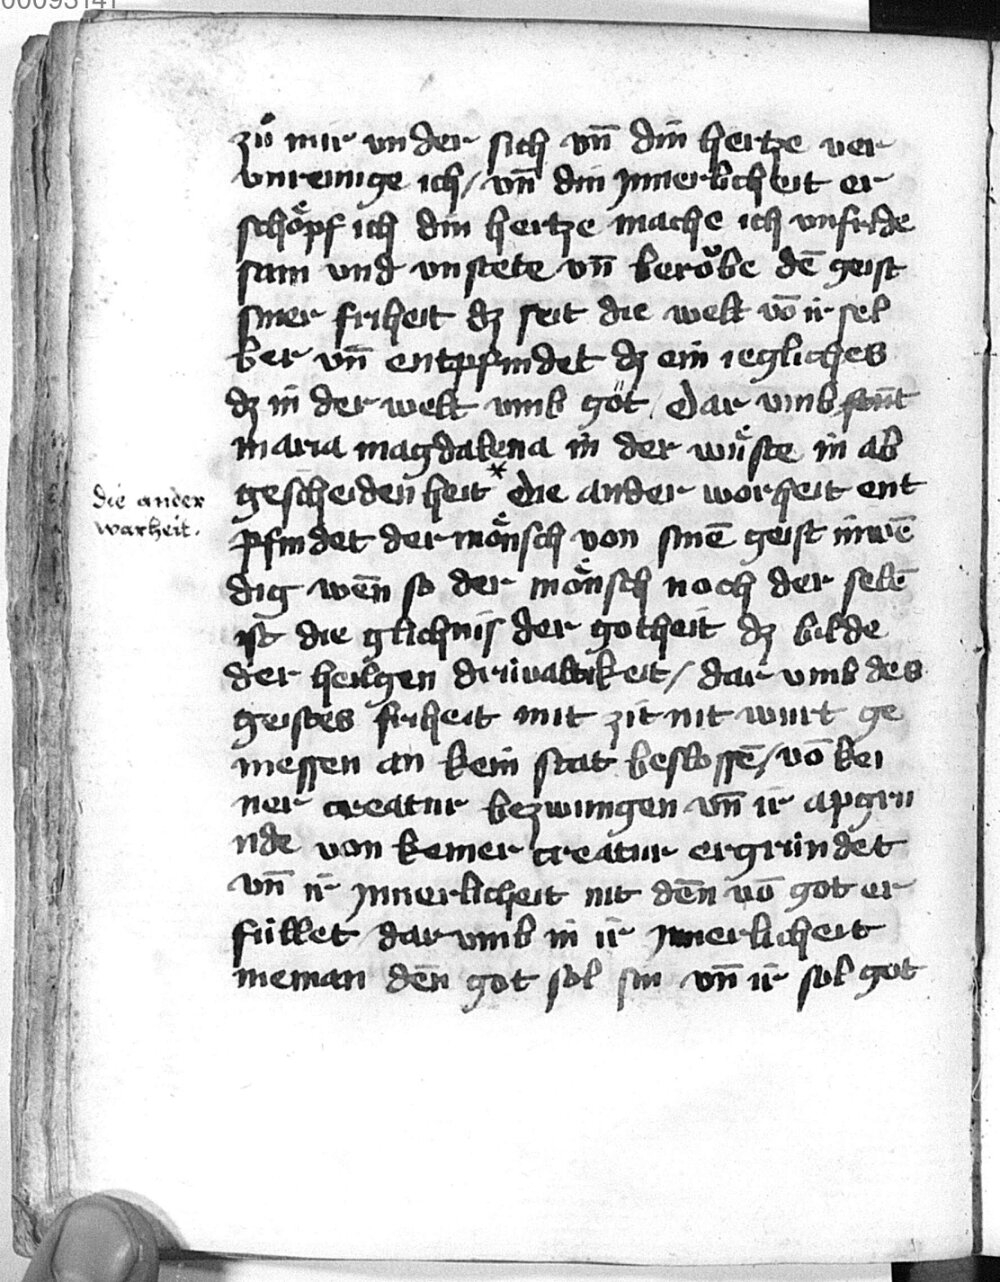 zů mir vnder sich vn̄ din hertze ver
vnreinige ich / vn̄ din jnnerlicheit er
schöpf ich din hertze mache ich vnfride
sam vnd vnstete vn̄ berǒbe dē geist
siner friheit dz seit die welt vō ir sel
ber vn̄ entpfindet dz ein iegliches
dz in der welt vmb göt / Dar vmb
maria magdalena in der wůste in ab
gescheidenheit * Die ander worheit ent
die ander
warheit.
pfindet der mönsch von sinē geist inwē
dig wēn so der mönsch noch der selē
ist die glichnis der gotheit dz bilde
der heilgen driualtikeit / dar vmb des
geistes friheit mit zit nit wurt ge
messen an kein stat beslossē / vō kei
ner creatur bezwungen vn̄ ir apgru
nde von keiner creatur ergrundet
vn̄ ir jnnerlicheit nit dēn vō got er
füllet dar vmb in ir jnnerlicheit
nieman dēn got sol sin vn̄ ir sol got